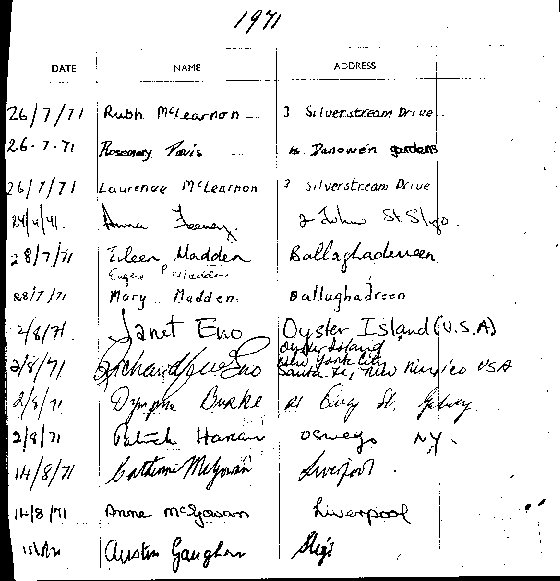 1971
DATE NAME ADDRESS
26/7/71 Ruth McLearnon 3 Silverstream Drive
26-7-71 Rosemary Davis Danowen gardens
26/7/71 Laurence McLearnon 3 Silverstream Drive
Anna Feeney 2 John St Sligo.
28/7/71 Eileen Madden Ballaghadereen
Eugene P Madden
28/7/71 Mary Madden Ballaghadreen
2/8/71 Janet Eno Oyster Island (U.S.A)
Oyster Island
New York City
2/8/71 Eno Santa Fe, New Mexico USA
2/8/71 Dympna Burke St. Galway
2/8/71 Patrick Hanan Oswego NY.
14/8/71 Catherine McGowan Liverpool.
14/8/71 Anne McGowan Liverpool
Austin Gaughan Sligo